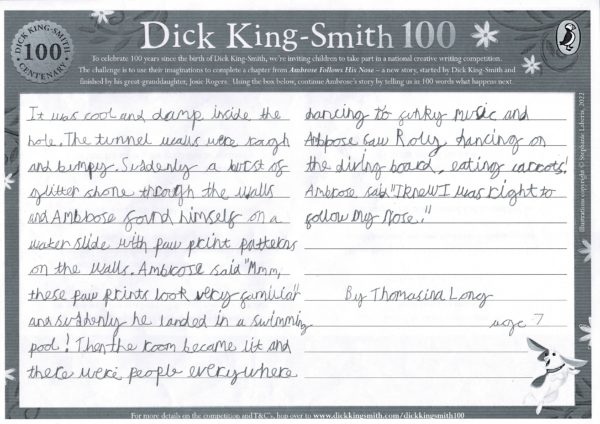 DICK KING-SMITH
100
CENTENARY
Dick King-Smith 100
To celebrate 100 years since the birth of Dick King-Smith, we're inviting children to take part in a national creative writing competition.
The challenge is to use their imaginations to complete a chapter from Ambrose Follows His Nose – a new story, started by Dick King-Smith and
finished by his great-granddaughter, Josie Rogers. Using the box below, continue Ambrose's story by telling us in 100 words what happens next.
It was cool and damp inside the
hole. The tunnel walls were rough
and bumpy. Suddenly a burst of
glitter shone through the walls
and Ambrose found himself on a
water slide with paw print patterns
on the walls. Ambrose said "Mmm,
these paw prints look very familiar"
and suddenly he landed in a swimming
pool! Then the room became lit and
there were people everywhere
dancing to funky music and
Ambrose saw Roly dancing on
the diving board, eating carrots!
Ambrose said "I knew I was right to
follow my nose!"
By Thomasina Long
age 7
Illustrations copyright © Stephanie Laberis, 2022
For more details on the competition and T&C's, hop over to www.dickkingsmith.com/dickkingsmith100